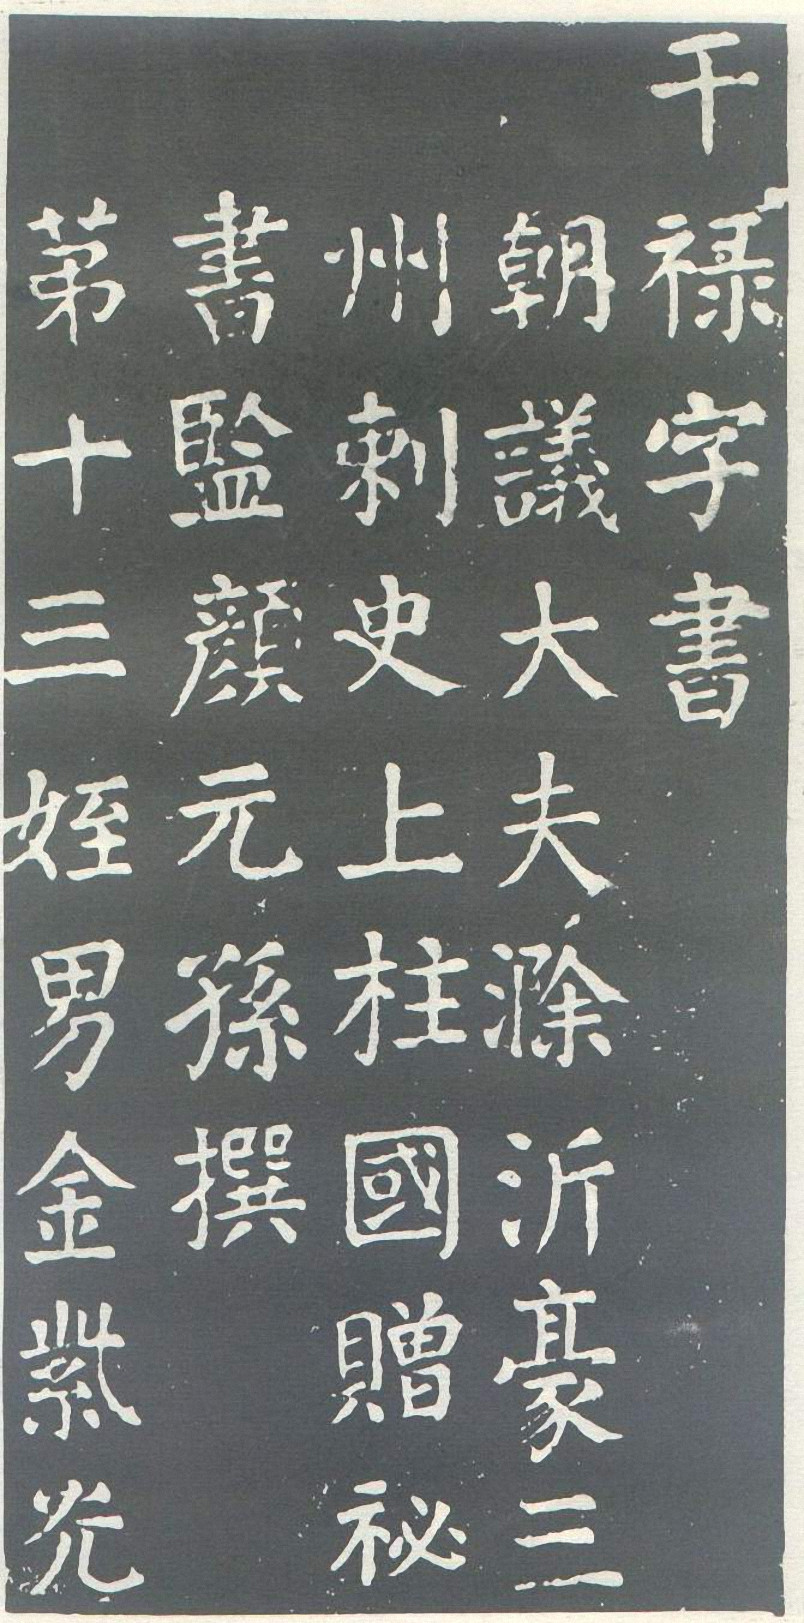 干禄字書
朝議大夫滁沂豪三
州刺史上柱國贈祕
書監顏元孫撰
第十三姪男金紫光